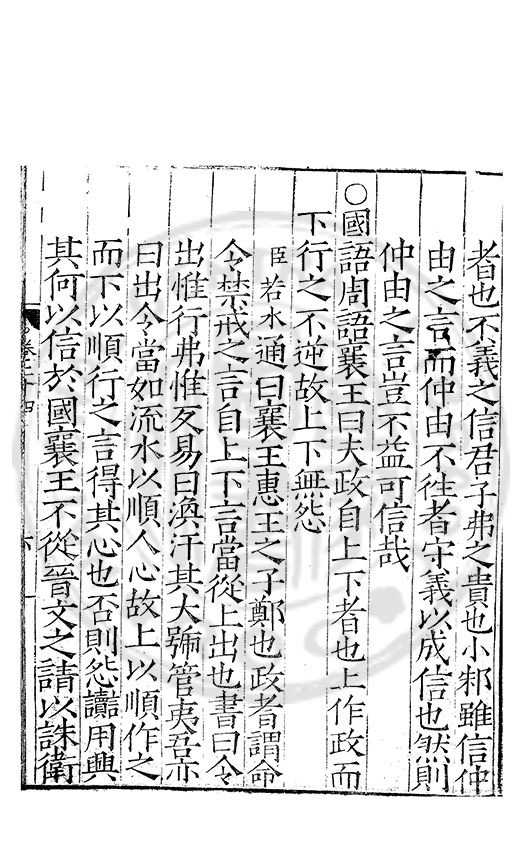 者也不義之信君子弗之貴也小邾雖信仲
由之言而仲由不往者守義以成信也然則
仲由之言豈不益可信哉
○國語周語襄王曰夫政自上下者也上作政而
下行之不逆故上下無怨
臣若水通曰襄王惠王之子鄭也政者謂命
令禁戒之言自上下言當從上出也書曰令
出惟行弗惟反易曰渙汗其大號管夷吾亦
曰出令當如流水以順人心故上以順作之
而下以順行之言得其心也否則怨讟用興
其何以信於國襄王不從晉文之請以誅衛
卷二十四
六